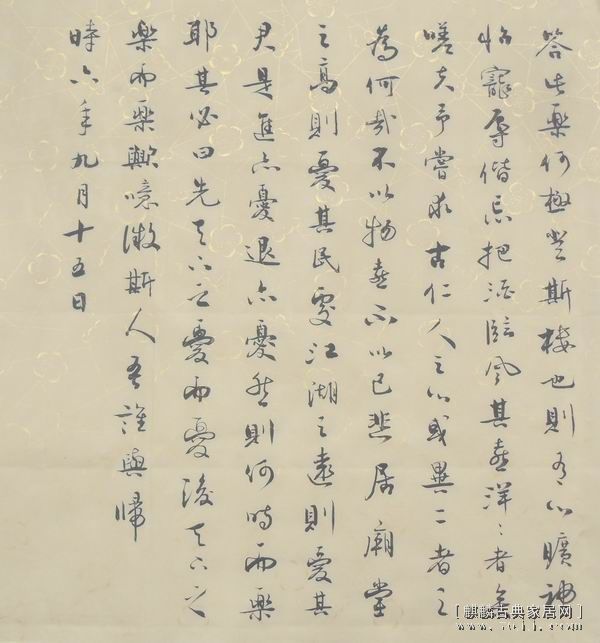 答此樂何極登斯樓也則有心曠神
怡寵辱偕忘把酒臨風其喜洋洋者矣
嗟夫予嘗求古仁人之心或異二者之
為何哉不以物喜不以己悲居廟堂
之高則憂其民處江湖之遠則憂其
君是進亦憂退亦憂然則何時而樂
耶其必曰先天下之憂而憂後天下之
樂而樂歟噫微斯人吾誰與歸
時六年九月十五日
[麒麟古典家居网]